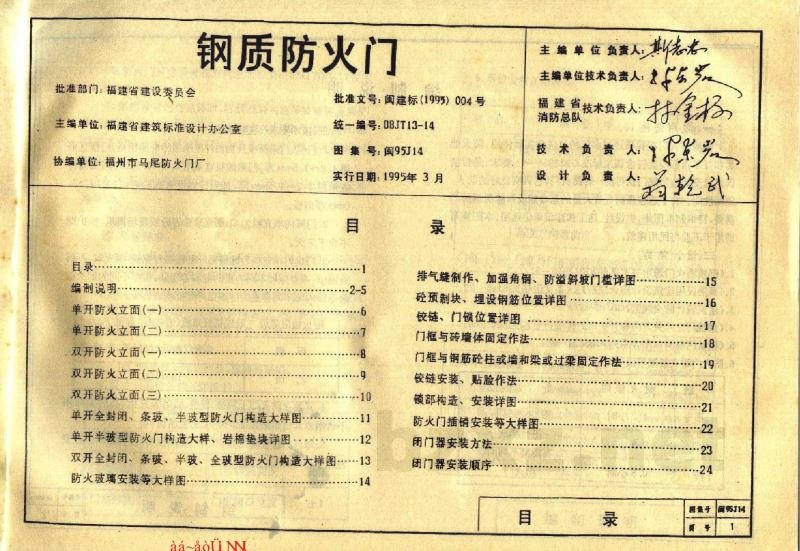 钢质防火门
批准部门：福建省建设委员会
主编单位：福建省建筑标准设计办公室
协编单位：福州市马尾防火门厂
批准文号：闽建标(1995) 004号
统一编号：DBJT13-14
图集号：闽95J14
实行日期：1995年3月
主编单位负责人：
主编单位技术负责人：
福建省消防总队技术负责人：
技术负责人：
设计负责人：
目 录
目录 1
编制说明 2-5
单开防火立面(一) 6
单开防火立面(二) 7
双开防火立面(一) 8
双开防火立面(二) 9
双开防火立面(三) 10
单开全封闭、条玻、半玻型防火门构造大样图 11
单开半玻型防火门构造大样、岩棉垫块详图 12
双开全封闭、条玻、半玻、全玻型防火门构造大样图 13
防火玻璃安装等大样图 14
排气缝制作、加强角钢、防溢斜坡门槛详图 15
砼预制块、埋设钢筋位置详图 16
铰链、门锁位置详图 17
门框与砖墙体固定作法 18
门框与钢筋砼柱或墙和梁或过梁固定作法 19
铰链安装、贴脸作法 20
锁部构造、安装详图 21
防火门插销安装等大样图 22
闭门器安装方法 23
闭门器安装顺序 24
目 录
图集号 闽95J14
页号 1
àá~åòÜ